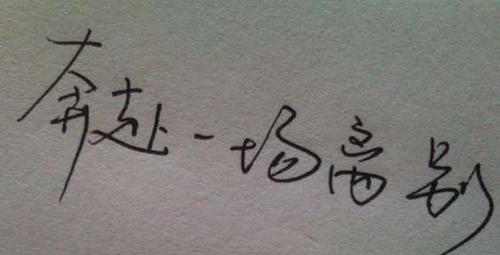 奔赴一场离别